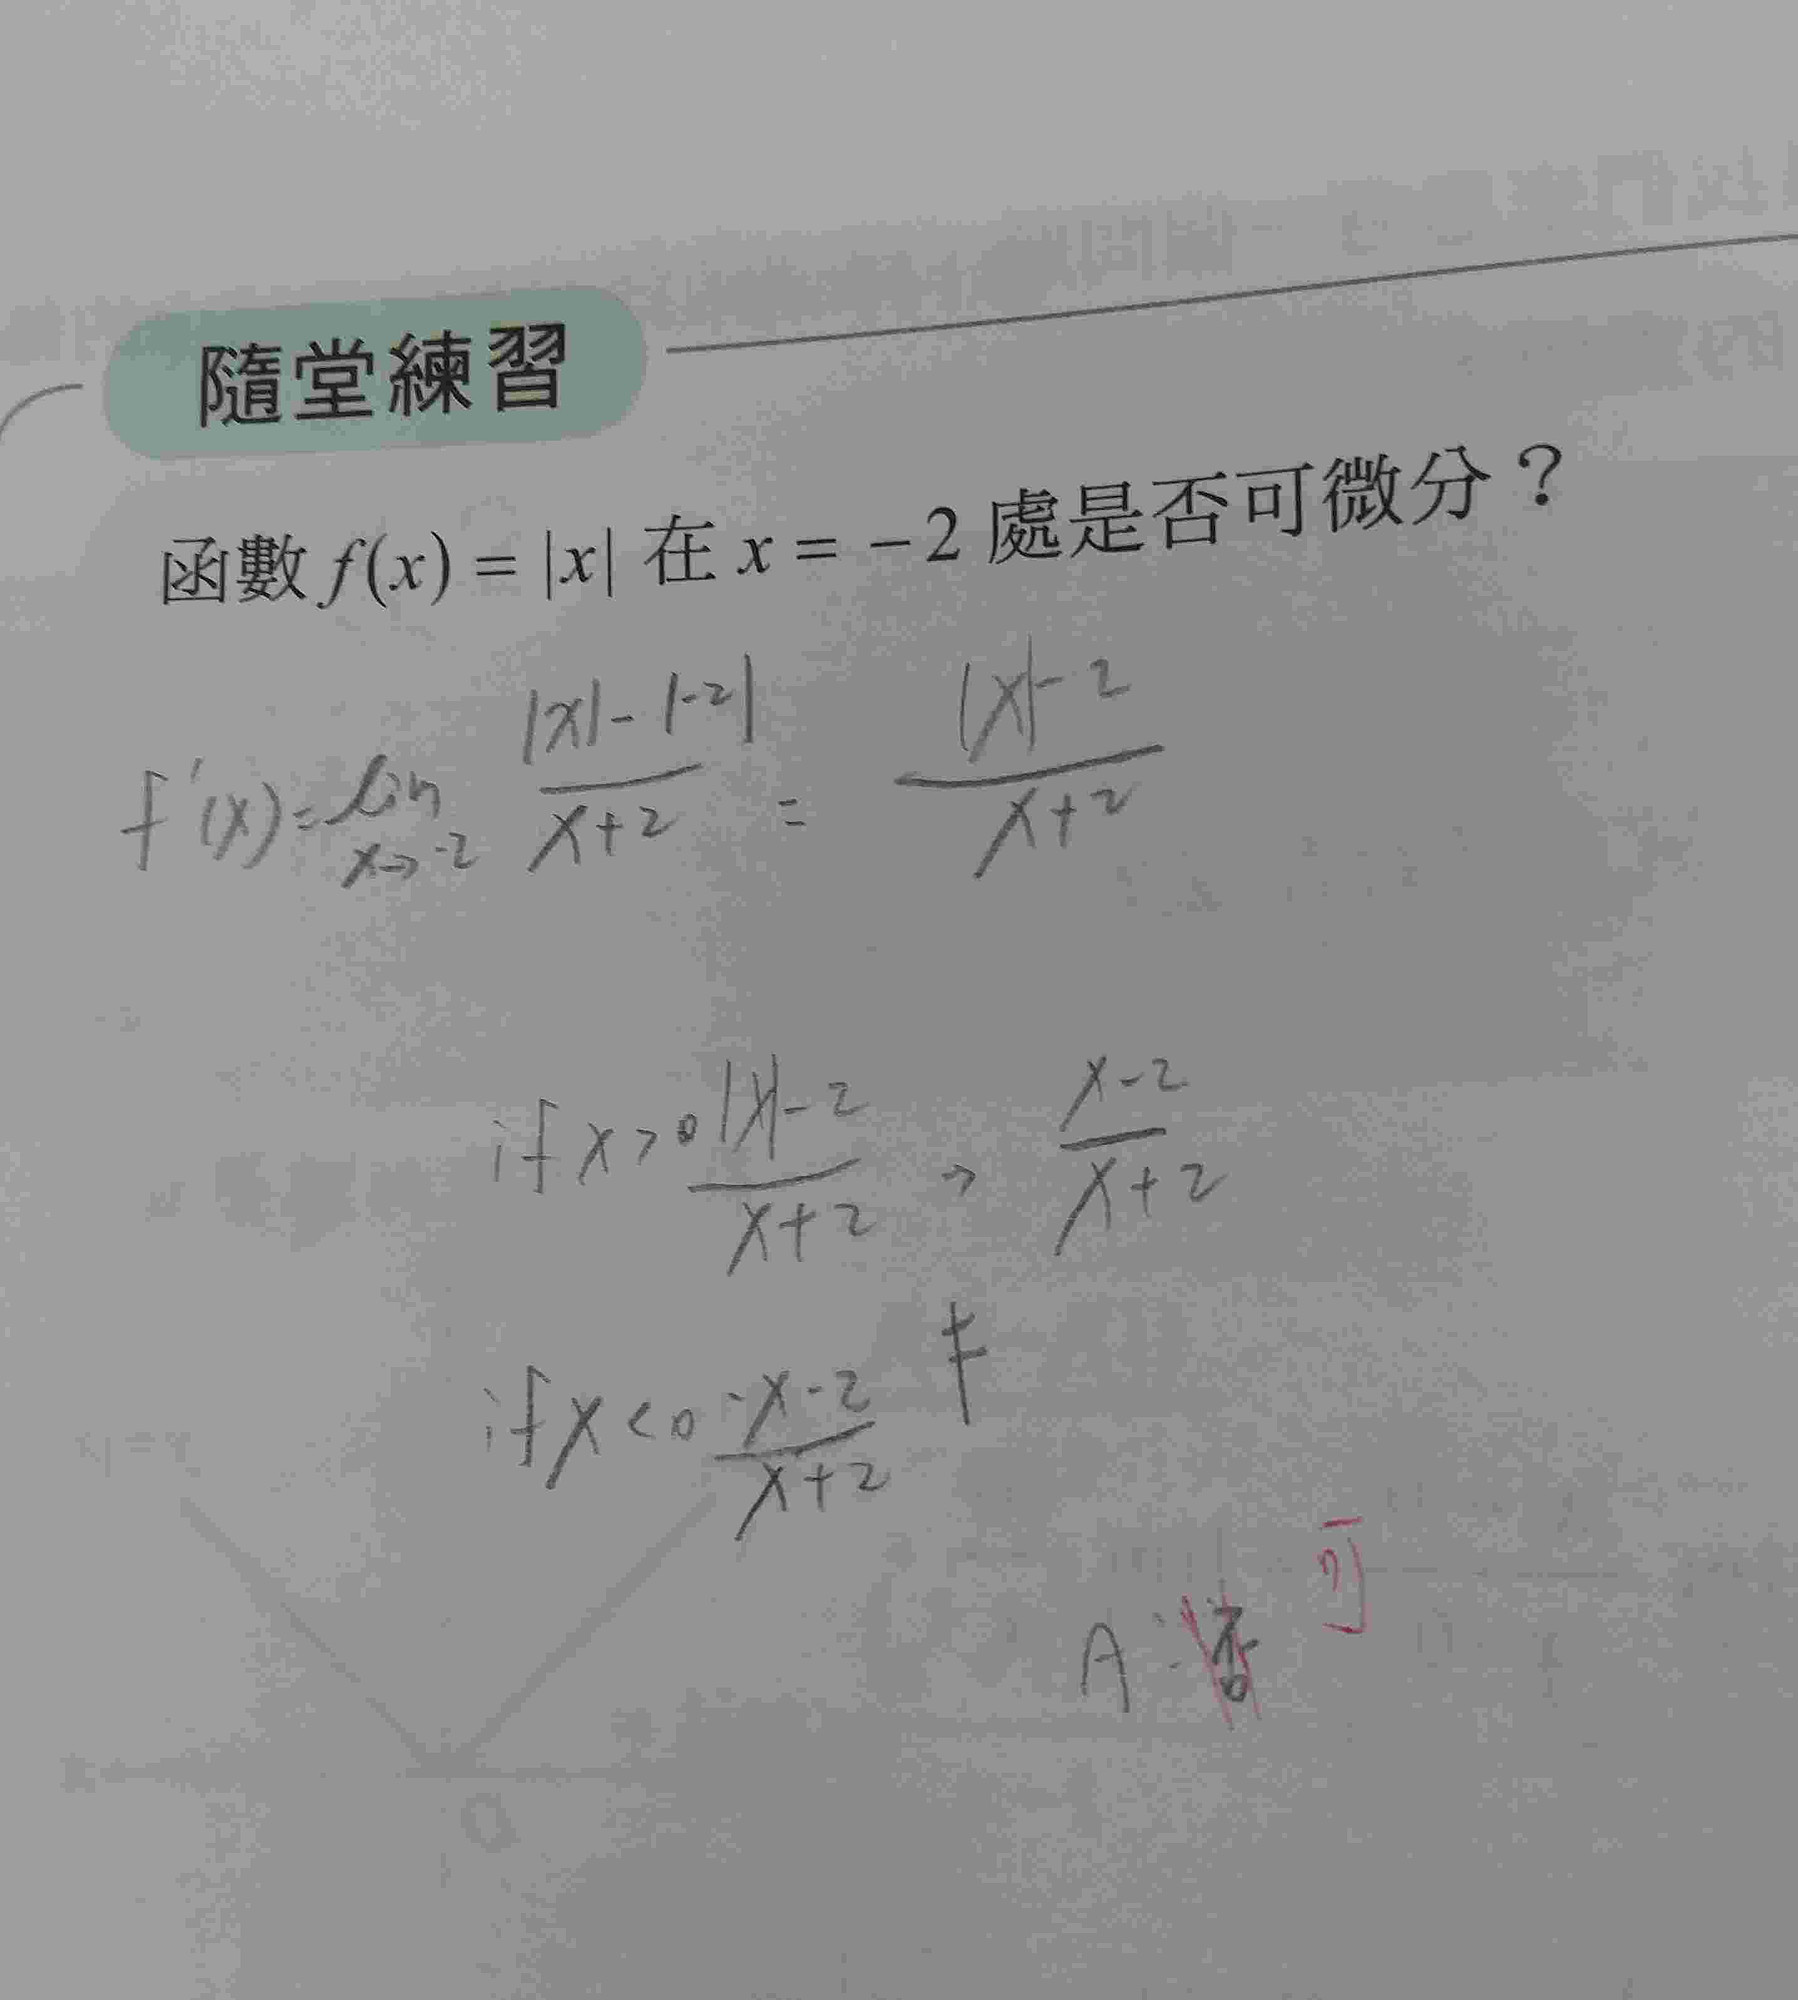 隨堂練習
函數 f(x) = |x| 在 x = −2 處是否可微分？
f'(x) = lim x→-2 |x| - |-2| / x+2 = |x| - 2 / x+2
if x > 0 |x| - 2 / x+2 → x-2 / x+2
≠
if x < 0 -x-2 / x+2
可
A: 否